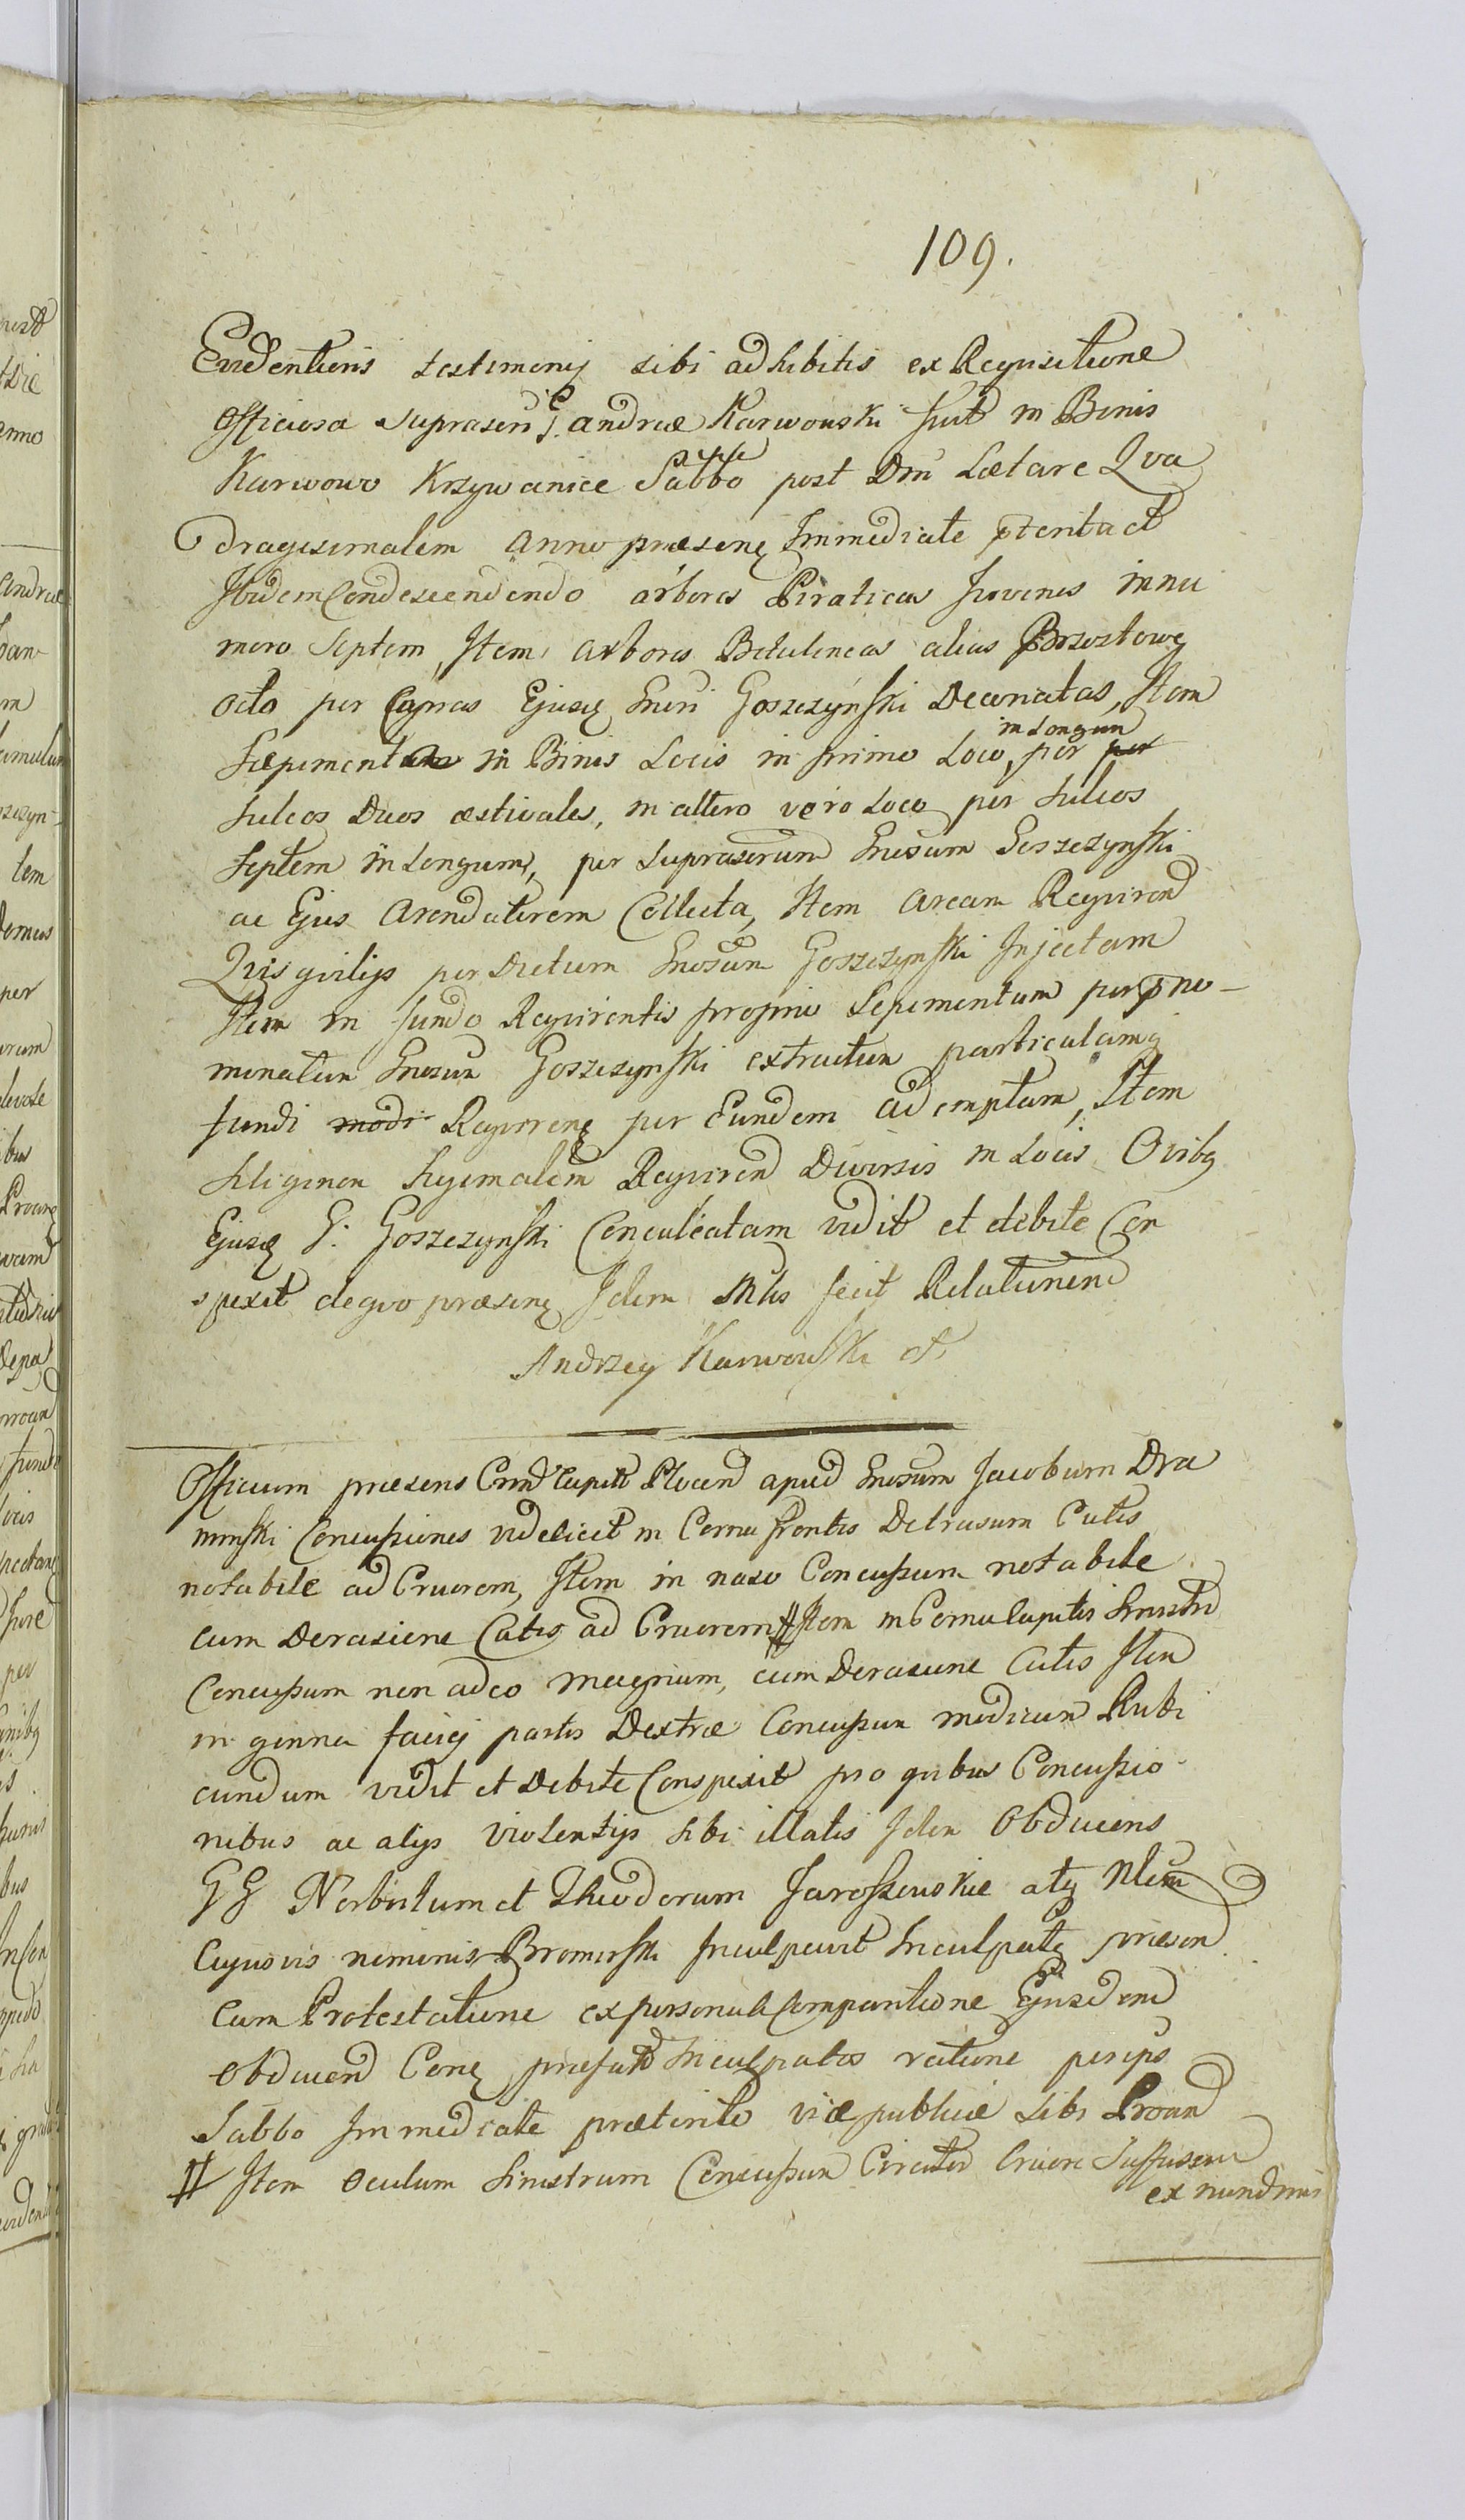 109.
Evidentioris testimonij sibi adhibitis ex Requisitione
Officiosa suprascri G. Andreæ Karwowski fuit in Bonis
Karwowo Krzywanice Sabbo ipso post Dm̃ Lætare Qua
dragesimalem Anno præsenę Immediate pterita et
Ibidem Condescendendo arbores Piraticas Juvenes in nu
mero Septem, Item arbores Betulineas alias Brzostowę
octo per Capras Ejusę Gnri Goszczynski Decoricatas, Item
Sæpimenta in Binis Locis in primo Loco, in Longum per per
Sulcos Duos æstivales, in altero vero Loco per Sulcos
Septem in Longum, per suprascrum Gnrosum Goszczynski
ac Ejus Arendatorem Collecta, Item Aream Requirend
Quisquilijs per Dictum Gnrosum Goszczynski Injectam
Item in fundo Requirentis proprio Sepimentum per pno-
minatum Gnrosum Goszczynski extructum particulamq
fundi modi Requirenę per Eundem ademptam, Item
Siliginem hyemalem Requirend Diversis in Locis Ovibq
Ejusę G. Goszczynski Conculcatam vidit et debite Con
spexit de quo præsenę Idem Mlis fecit Relationem
Andrzey Karwowski
Officium præsens Crnd Capit Plocen apud Gnrosum Jacobum Dra
minski Concussiones videlicet in Cornu frontis Detrusum Cutis
notabile ad Cruorem, Item in naso Concussum notabile
cum Derasione Cutis ad Cruorem # Item in Cornu Capitis Sinistri
Concussum non adeo magnum, cum Derasione Cutis Item
in genna faciej partis Dextræ Concussum modicum Rubi
cundum vidit et Debite Conspexit pro quibus Concussio-
nibus ac alijs violentijs sibi illatis Idem Obducens
GG Norbertum et Theodorum Jaroszewskie atq Nlem
Cujusvis nominis Bromirski Inculpavit Inculpatq præsen
Cum Protestatione ex personali Comparitione Ejusdem
Obducen Conę præfato Inculpatos ratione perips
Sabbo Immediate præterito viæ publicæ sibi Proand
# Item Oculum Sinistrum Concussum Circuter Cruore Suffusum
ex nundinis